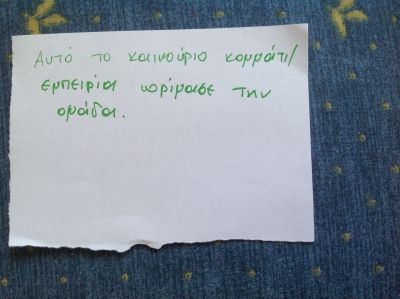 Αυτό το καινούριο κομμάτι/
εμπειρία ωρίμασε την
ομάδα.